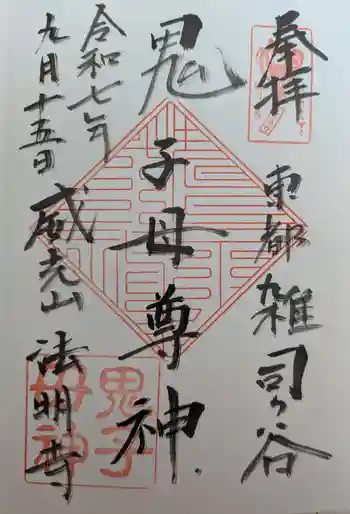 奉拝
東都雑司ヶ谷
鬼子母尊神
威光山法明寺
令和七年
九月十五日
鬼子
母神